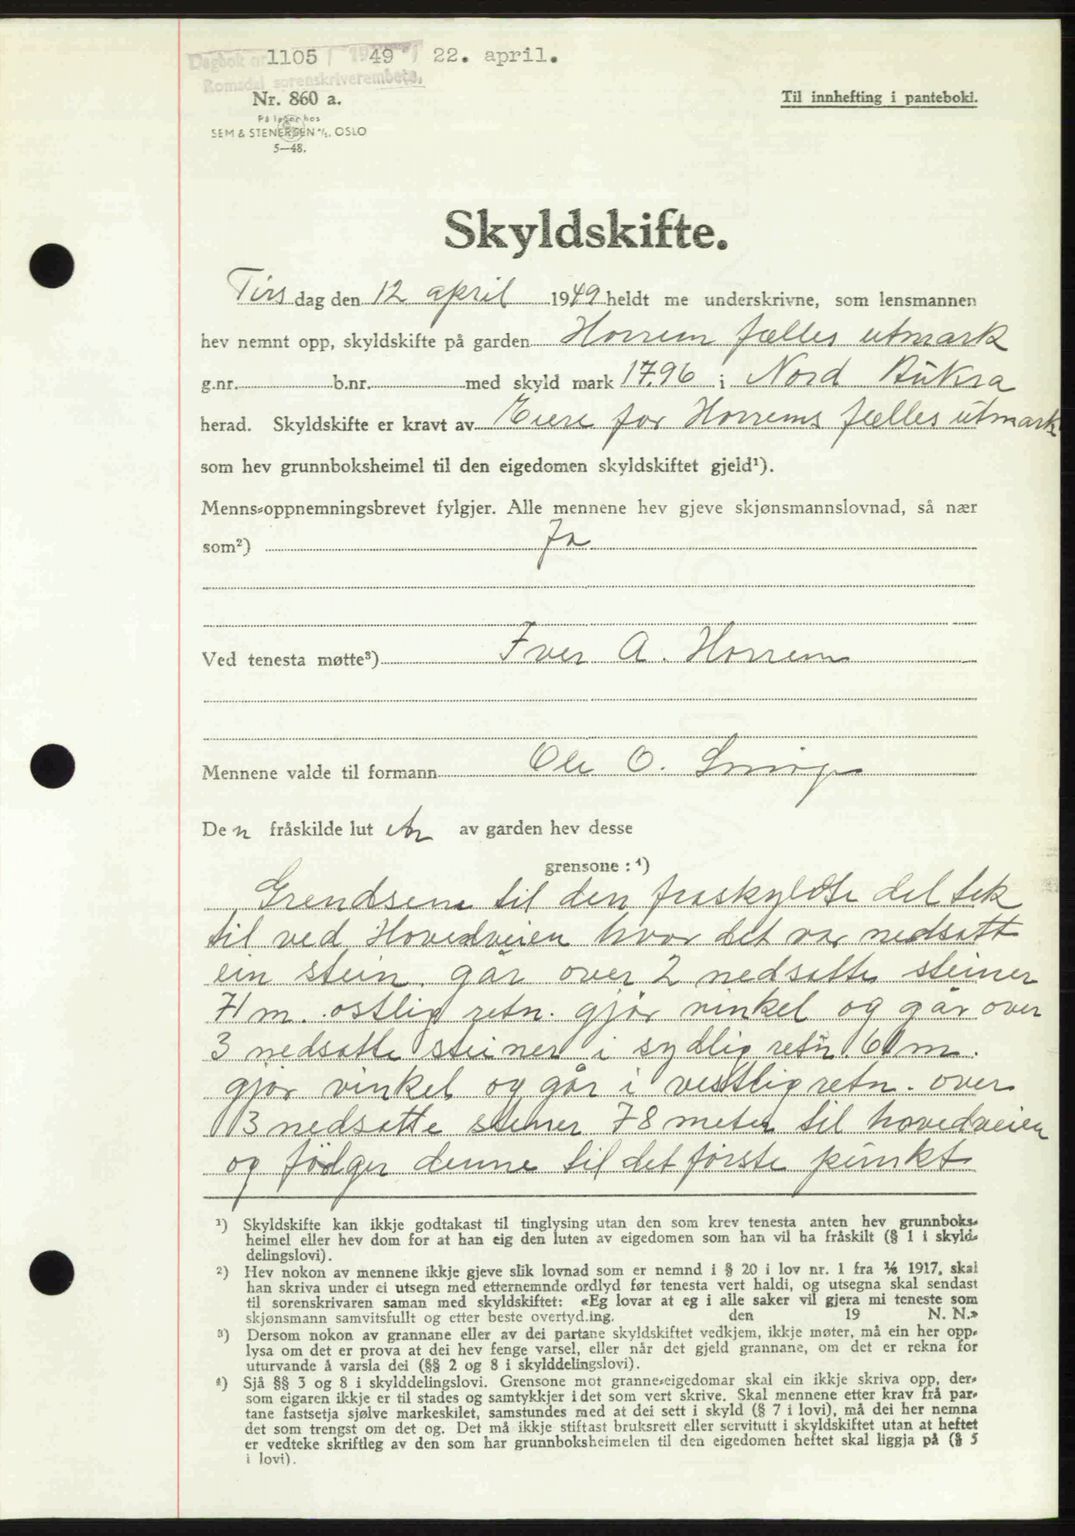 Dagbok nr. 1105 / 1949 22. april.
Romsdal sorenskriverembete.
Nr. 860 a.
På lager hos
SEM & STENERSEN A/S, OSLO
5—48.
Til innhefting i panteboki.
Skyldskifte.
Tirsdag den 12 april 1949 heldt me underskrivne, som lensmannen
hev nemnt opp, skyldskifte på garden Horrem fælles utmark
g.nr. b.nr. med skyld mark 17.96 i Nord Bukra
herad. Skyldskifte er kravt av Eiere for Horrems fælles utmark
som hev grunnboksheimel til den eigedomen skyldskiftet gjeld¹).
Menns-oppnemningsbrevet fylgjer. Alle mennene hev gjeve skjønsmannslovnad, så nær
som²) Ja
Ved tenesta møtte³) Iver A. Horrem
Mennene valde til formann Ole O.
Den fråskilde lut av garden hev desse
grensone : ⁴)
Grendsene til den fraskyldte del tek
til ved Hovedveien hvor det var nedsatt
ein stein, går over 2 nedsatte steiner
71 m. ostlig retn. gjør vinkel og går over
3 nedsatte steiner i sydlig retn. 61 m.
gjør vinkel og går i vestlig retn. over
3 nedsatte steiner 78 meter til hovedveien
og følger denne til det første punkt
¹) Skyldskifte kan ikkje godtakast til tinglysing utan den som krev tenesta anten hev grunnboks-
heimel eller hev dom for at han eig den luten av eigedomen som han vil ha fråskilt (§ 1 i skyld-
delingslovi).
²) Hev nokon av mennene ikkje gjeve slik lovnad som er nemnd i § 20 i lov nr. 1 fra 1/6 1917, skal
han skriva under ei utsegn med etternemnde ordlyd før tenesta vert haldi, og utsegna skal sendast
til sorenskrivaren saman med skyldskiftet: «Eg lovar at eg i alle saker vil gjera mi teneste som
skjønsmann samvitsfullt og etter beste overtyding. den 19 N. N.»
³) Dersom nokon av grannane eller av dei partane skyldskiftet vedkjem, ikkje møter, må ein her opp-
lysa om det er prova at dei hev fenge varsel, eller når det gjeld grannane, om det er rekna for
uturvande å varsla dei (§§ 2 og 8 i skylddelingslovi).
⁴) Sjå §§ 3 og 8 i skylddelingslovi. Grensone mot granne-eigedomar skal ein ikkje skriva opp, der-
som eigaren ikkje er til stades og samtykkjer i det som vert skrive. Skal mennene etter krav frå par-
tane fastsetja sjølve markeskilet, samstundes med at dei sett i skyld (§ 7 i lovi), må dei her nemna
det som trengst om det og. Det må ikkje stiftast bruksrett eller servitutt i skyldskiftet utan at heftet
er vedteke skriftleg av den som har grunnboksheimelen til den eigedomen heftet skal liggja på (§ 5
i lovi).